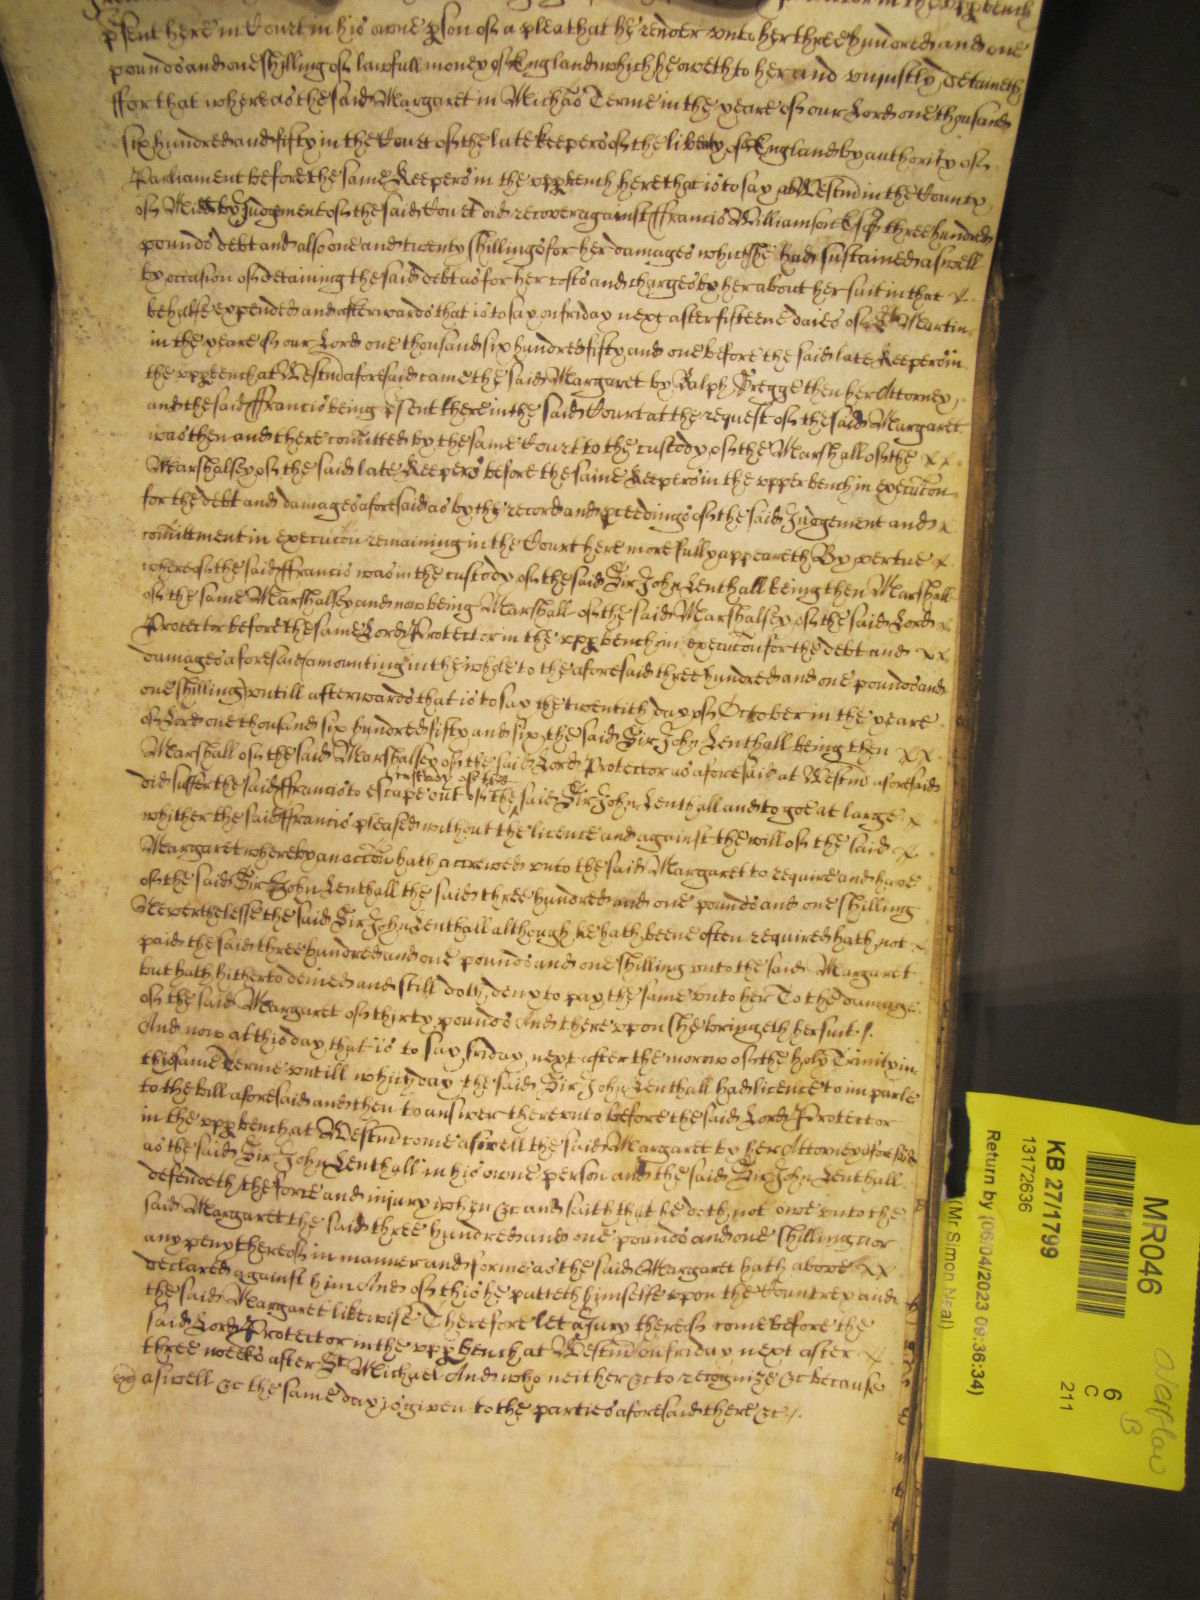 in the upp bench
psent here in Court in his owne pson of a plea that he render unto her three hundred and one
pounds and one shilling of lawfull money of England which he oweth to her and unjustly detaineth
ffor that whereas the said Margaret in Michas Terme in the yeare of our Lord one thousand
six hundred and fifty in the Court of the late keepers of the liberty of England by authority of
Parliament before the same Keepers in the upp bench here that is to say at Westm in the County
of Midd by Judgement of the said Court did recover against ffrancis Williamson Esq three hundred
pounds debt and also one and twenty shillings for her damages which she had sustained aswell
by occasion of detaining the said debt as for her costs and charges by her about her suit in that
behalfe expended and afterwards that is to say on friday next after fifteene daies of St Martin
in the yeare of our Lord one thousand six hundred fifty and one before the said late Keepers in
the upp bench at Westm aforesaid came the said Margaret by Ralph Gregge then her Attorney
and the said ffrancis being psent there in the said Court at the request of the said Margaret
was then and there comitted by the same Court to the custody of the Marshall of the
Marshalsey of the said late Keepers before the same Keepers in the upper bench in execucon
for the debt and damages aforesaid as by the record and pceedings of the said Judgement and
comittment in execucon remaining in the Court here more fully appeareth By vertue
whereof the said ffrancis was in the custody of the said Sir John Lenthall being then Marshall
of the same Marshalsey and now being Marshall of the said Marshalsey of the said Lord
Protector before the same Lord Protector in the upp bench in execucon for the debt and
damages aforesaid amounting in the whole to the aforesaid three hundred and one pounds and
one shilling untill afterwards that is to say the twentith day of October in the yeare
of Lord one thousand six hundred fifty and six the said Sir John Lenthall being then
Marshall of the said Marshalsey of the said Lord Protector as aforesaid at Westm aforesaid
custody of the
did suffer the said ffrancis to escape out of the said Sir John Lenthall and to goe at large
whither the said ffrancis pleased without the licence and against the will of the said
Margaret whereby an accon hath accrewed unto the said Margaret to require and have
of the said Sir John Lenthall the said three hundred and one pounds and one shilling
Neverthelesse the said Sir John Lenthall although he hath beene often required hath not
paid the said three hundred and one pounds and one shilling unto the said Margaret
but hath hitherto denied and still doth deny to pay the same unto her To the damage
of the said Margaret of thirty pounds And thereupon she bringeth her suit
And now at this day that is to say friday next after the morow of the holy Trinity in
this same Terme untill which day the said Sir John Lenthall had licence to imparle
to the bill aforesaid and then to answer thereunto before the said Lord Protector
in the upp bench at Westm come aswell the said Margaret by her Attorney aforesaid
as the said Sir John Lenthall in his owne person and the said Sir John Lenthall
defendeth the force and injury when &c and saith that he doth not owe unto the
said Margaret the said three hundred and one pounds and one shilling nor
any peny thereof in manner and forme as the said Margaret hath above
declared against him And of this he putteth himselfe upon the Countrey and
the said Margaret likewise Therefore let a Jury thereof come before the
said Lord Protector in the upp bench at Westm on friday next after
three weeks after St Michael And who neither &c to recognize &c because
aswell &c the same day is given to the parties aforesaid there &c
MR046
KB 27/1799
13172636
Return by (06/04/2023 09:36:34)
(Mr Simon Neal)
6
C
211
overflow
B